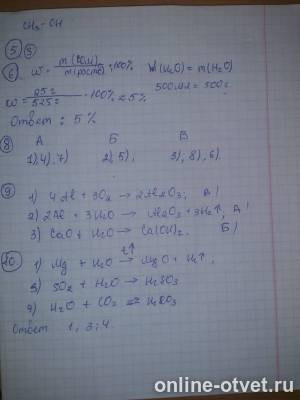 CH₃-OH
5) 3)
6) w = m(соли) / m(раствора) · 100% V(H₂O) = m(H₂O)
500 мл = 500 г
w = 25г / 525г · 100% ≈ 5%
Ответ: 5 %
8) А Б В
1), 4), 7) 2), 5), 3), 8), 6).
9) 1) 4 Al + 3O₂ → 2Al₂O₃; А)
2) 2Al + 3H₂O → Al₂O₃ + 3H₂↑; А)
3) CaO + H₂O → Ca(OH)₂. Б)
10) 1) Mg + H₂O → MgO + H₂↑;
3) SO₂ + H₂O → H₂SO₃
4) H₂O + CO₂ ⇄ H₂CO₃
Ответ 1, 3, 4.
online-otvet.ru